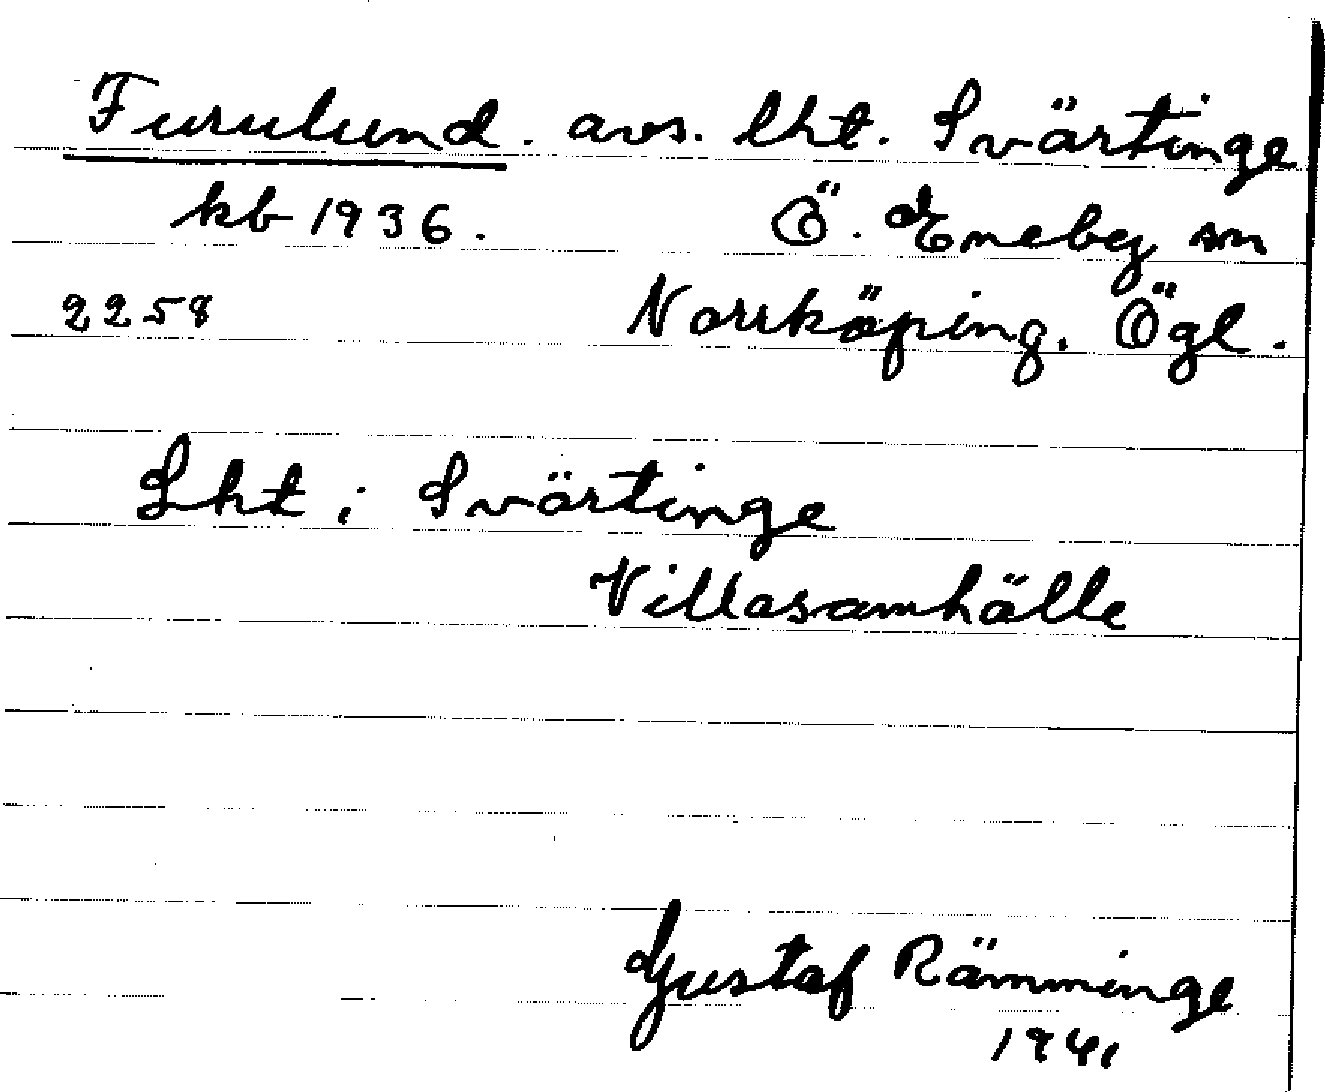 Furulund. avs. lht. Svärtinge
kb 1936. Ö. Eneby sn
2258 Norrköping. Ögl.
Lht i Svärtinge
Villasamhälle
Gustaf Rämminge
1941